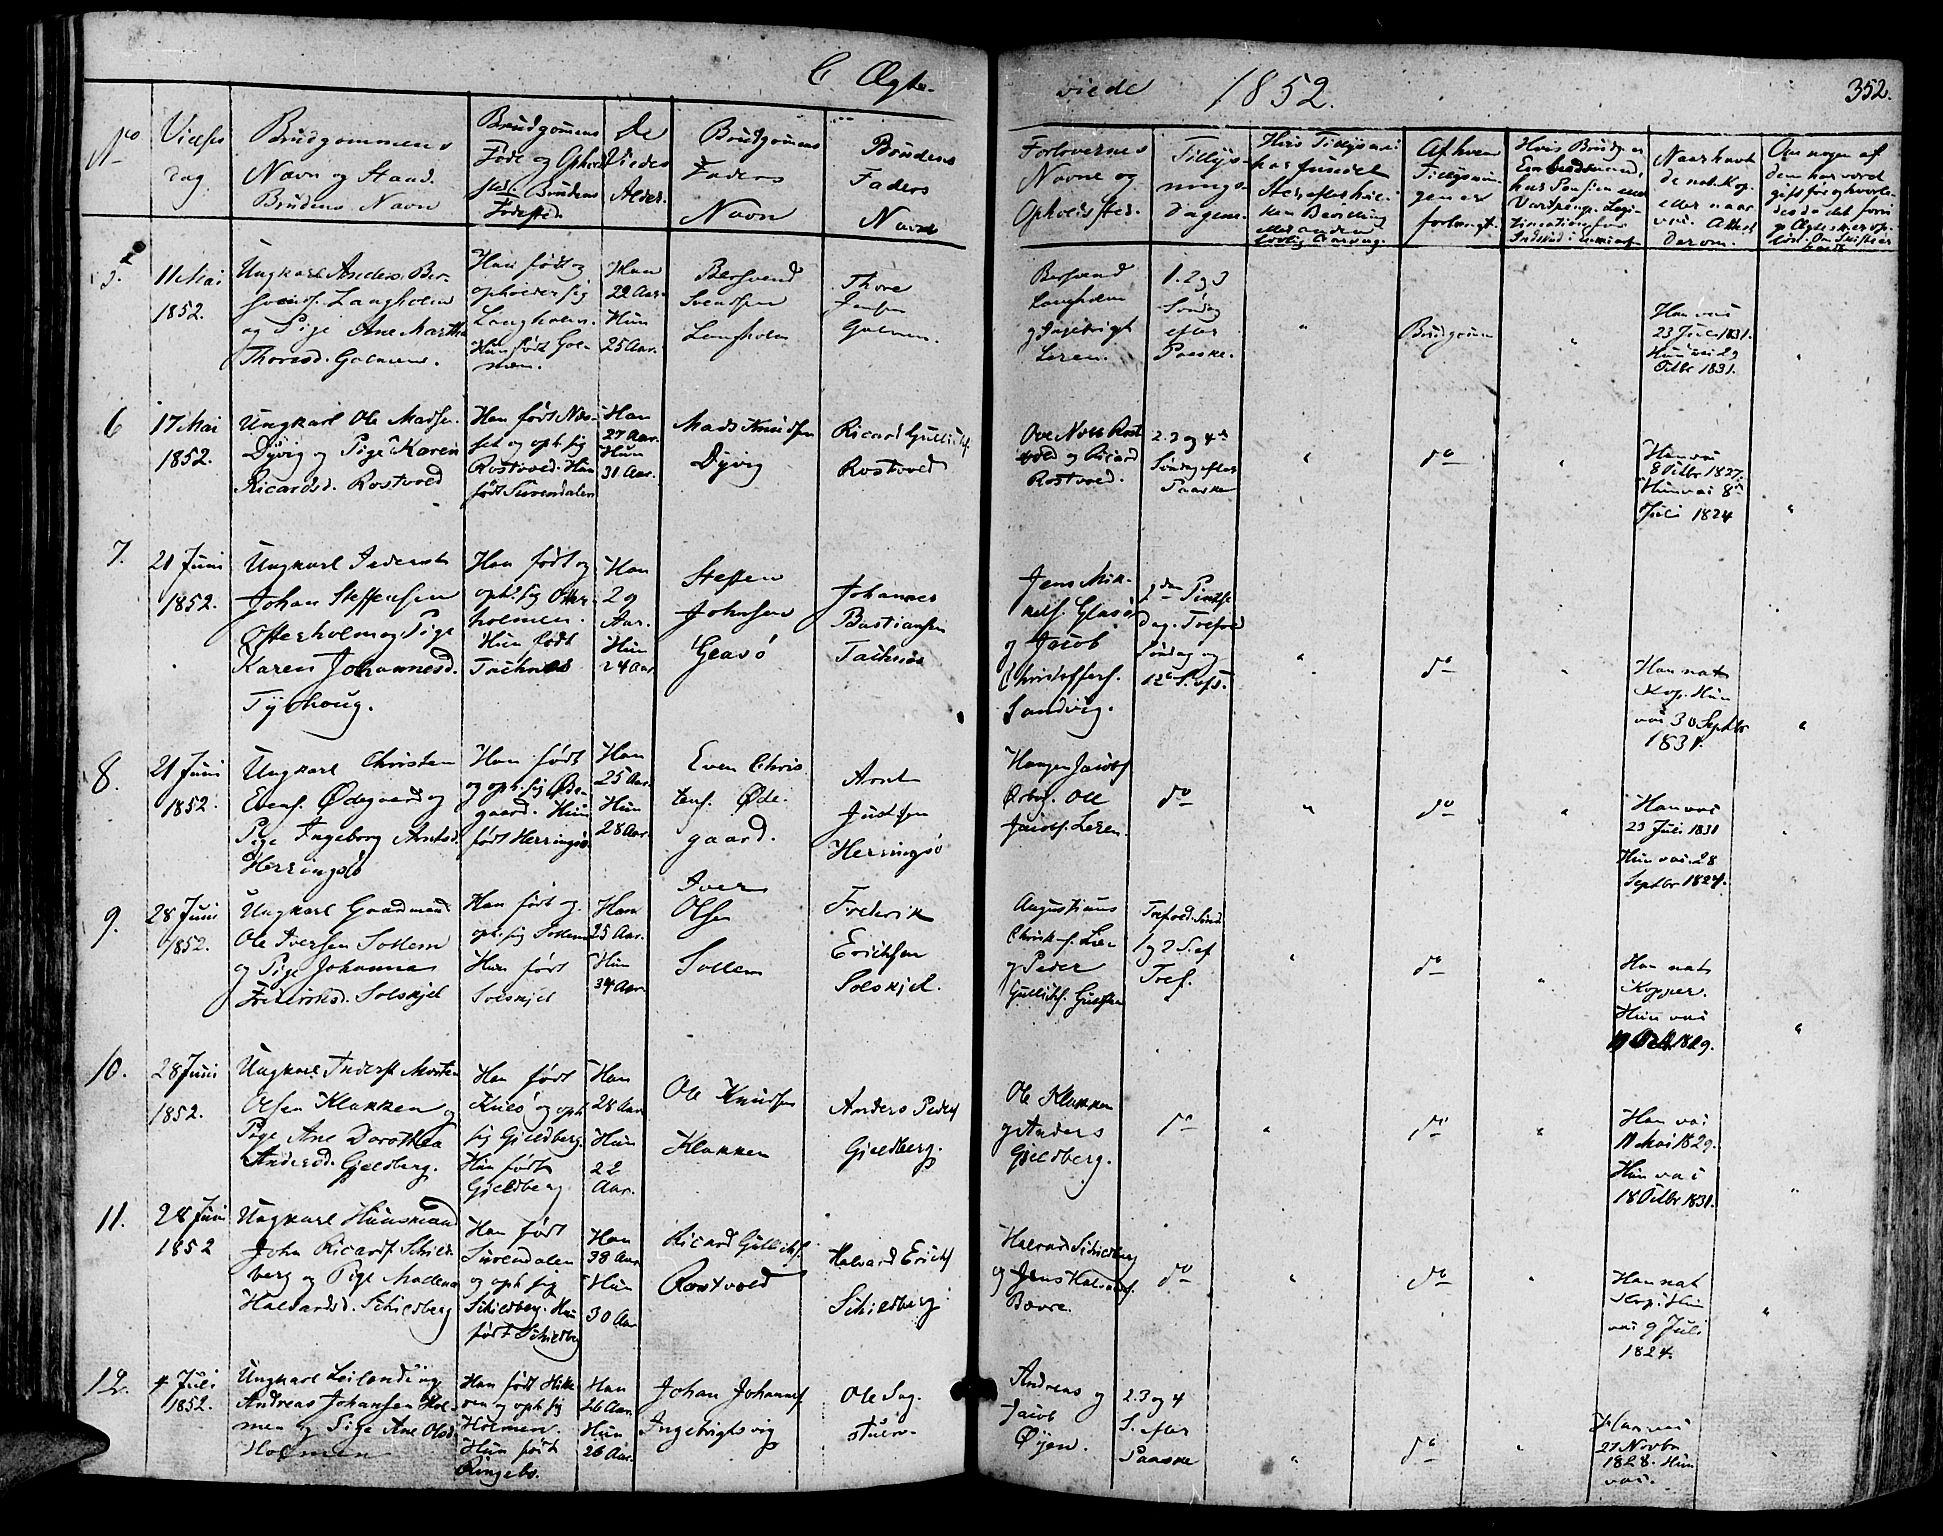 C Ægte-
viede 1852.
352.
No
Vielses
dag.
Brudgommens
Navn og Stand.
Brudens Navn
Brudgomens
Føde og Opholds
sted. Brudens
Fødested.
De
Viedes
Alder.
Brudgomens
Faders
Navn
Brudens
Faders
Navn
Forlovernes
Navne og
Opholdssted.
Tillys-
nings-
dagene.
Af hvem
Tillysnin-
gen er
forlangt.
5.
11 Mai
1852.
Ungkarl Anders Ber-
svends. Langholm
og Pige Ane Martha
Thoresd. Golmen.
Han født og
opholder sig
Langholm.
Hun født Gol-
men.
Han
22 Aar.
Hun
25 Aar.
Bersvend
Svendsen
Langholm
Thore
Jensen
Golmen.
Bersvend
Langholm
og Ingebrigt
Leren.
1. 2 og 3
Søndag
efter
Paaske.
"
Brudgomen
"
Han vac.
23 Juli 1831.
Hun vac. 29
Octbr 1831.
"
6
17 Mai
1852.
Ungkarl Ole Madsen
Dyvig og Pige Karen
Ricardsd. Rostvold
Han født Næs-
set og oph. sig
Rostvold. Hun
født Surendalen
Han
27 Aar.
Hun
31 Aar.
Mads Knudsen
Dyvig
Ricard Gullichs.
Rostvold
Ole Rost
vold og Ricard
Rostvold.
2. 3 og 4de
Søndag efter
Paaske
"
do
"
Han vac.
8 Octbr 1827.
Hun vac. 8de
Juli 1824
"
7.
21 Juni
1852.
Ungkarl Inderst
Johan Steffensen
Osterholm og Pige
Karen Johannesd.
Tyshoug.
Han født og
oph. sig Oster-
holmen.
Hun født
Tachnes
Han
29
Aar.
Hun
24 Aar
Steffen
Johnsen
Glasø
Johannes
Bastiansen
Tachnes
Jens Mik-
kels. Glasø
og Jacob
Christoffers.
Sandvig.
2den Pintse
dag. Trefold
Søndag og
12te S. eft.
"
do
"
Han nat.
Kop. Hun
vac. 30 Septbr
1831.
"
8.
21 Juni
1852.
Ungkarl Christen
Evens. Ødegaard og
Pige Ingeborg Arntsd.
Herringsø
Han født
og oph. sig Øde-
gaard. Hun
født Herringsø
Han
25 Aar.
Hun
28 Aar.
Even Chris
tens. Øde-
gaard.
Arnt
Justsen
Herringsø
Hangen Jacobs.
Ørbog. Ole
Jacobs. Leren.
do
"
do
"
Han vac.
23 Juli 1831
Hun vac. 28
Septbr 1824.
9.
28 Juni
1852.
Ungkarl Gaardmand
Ole Iversen Sollem
og Pige Johanna
Frederiksd. Solskjel
Han født og
oph. sig Sollem
Hun født
Solskjel
Han
25 Aar.
Hun
34 Aar.
Iver
Olsen
Sollem
Frederik
Erichsen
Solskjel.
Augustinus
Christ-s. Lien
og Peder
Trefold. Sønd.
1 og 2 S. ef
Tref.
"
do
"
Han nat.
Kopper.
Hun vac.
19 Oct. 1829.
"
10.
28 Juni
1852.
Ungkarl Inderst Morten
Olsen Klakken og
Pige Ane Dorothea
Andersd. Gjeldberg.
Han født
Kulsø og oph.
sig Gjeldberg.
Hun født
Gjeldberg
Han
28 Aar
Hun
22
Aar.
Ole Knudsen
Klakken
Anders Peders
Gjeldberg.
Ole Klakken
og Anders
Gjeldberg.
do
"
do
"
Han vac.
11 Mai 1829.
Hun vac.
18 Octbr 1831.
"
11.
28 Juni
1852
Ungkarl Huusmand
John Ricards. Schiel-
berg og Pige Malena
Halvardsd. Schieldberg
Han født
Surendalen
og oph. sig
Schieldberg. Hun
født Schieldberg
Han
38 Aar
Hun
30 Aar
Ricard Gullichs.
Rostvold
Halvard Erichs
Schieldberg
Halvard Schieldberg
og Jens Halvards.
Bævre.
do
"
do
"
Han nat.
Kop. Hun
vac. 9 Juli
1824.
"
12.
4 Juli
1852.
Ungkarl Leilending
Andreas Johansen Hol-
men og Pige Ane Olsd.
Holmen
Han født Hitte
ren og oph. sig
Holmen.
Hun født
Ringebo.
Han
26 Aar.
Hun
26 Aar.
Johan Johannes.
Ingebrigtsvig
Ole Sag-
stuen.
Andreas og
Jacob
Øyen.
2. 3 og 4
S. efter
Paaske
"
do
"
Han vac.
27 Novbr
1828. Hun
vac.